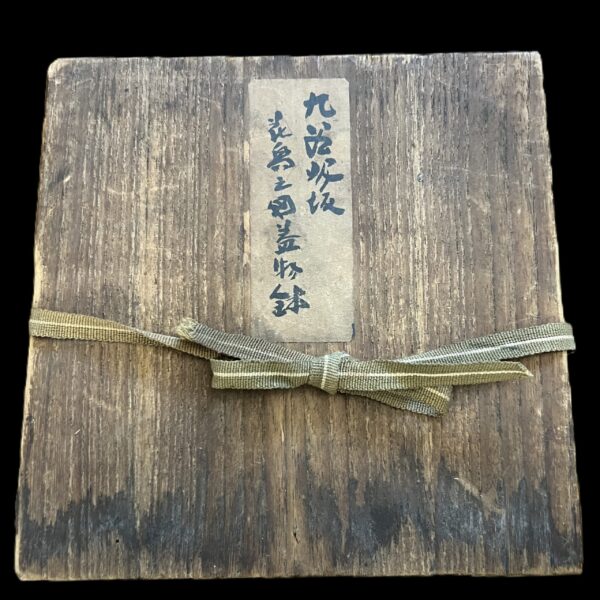 九谷焼坂
花鳥之図蓋物鉢